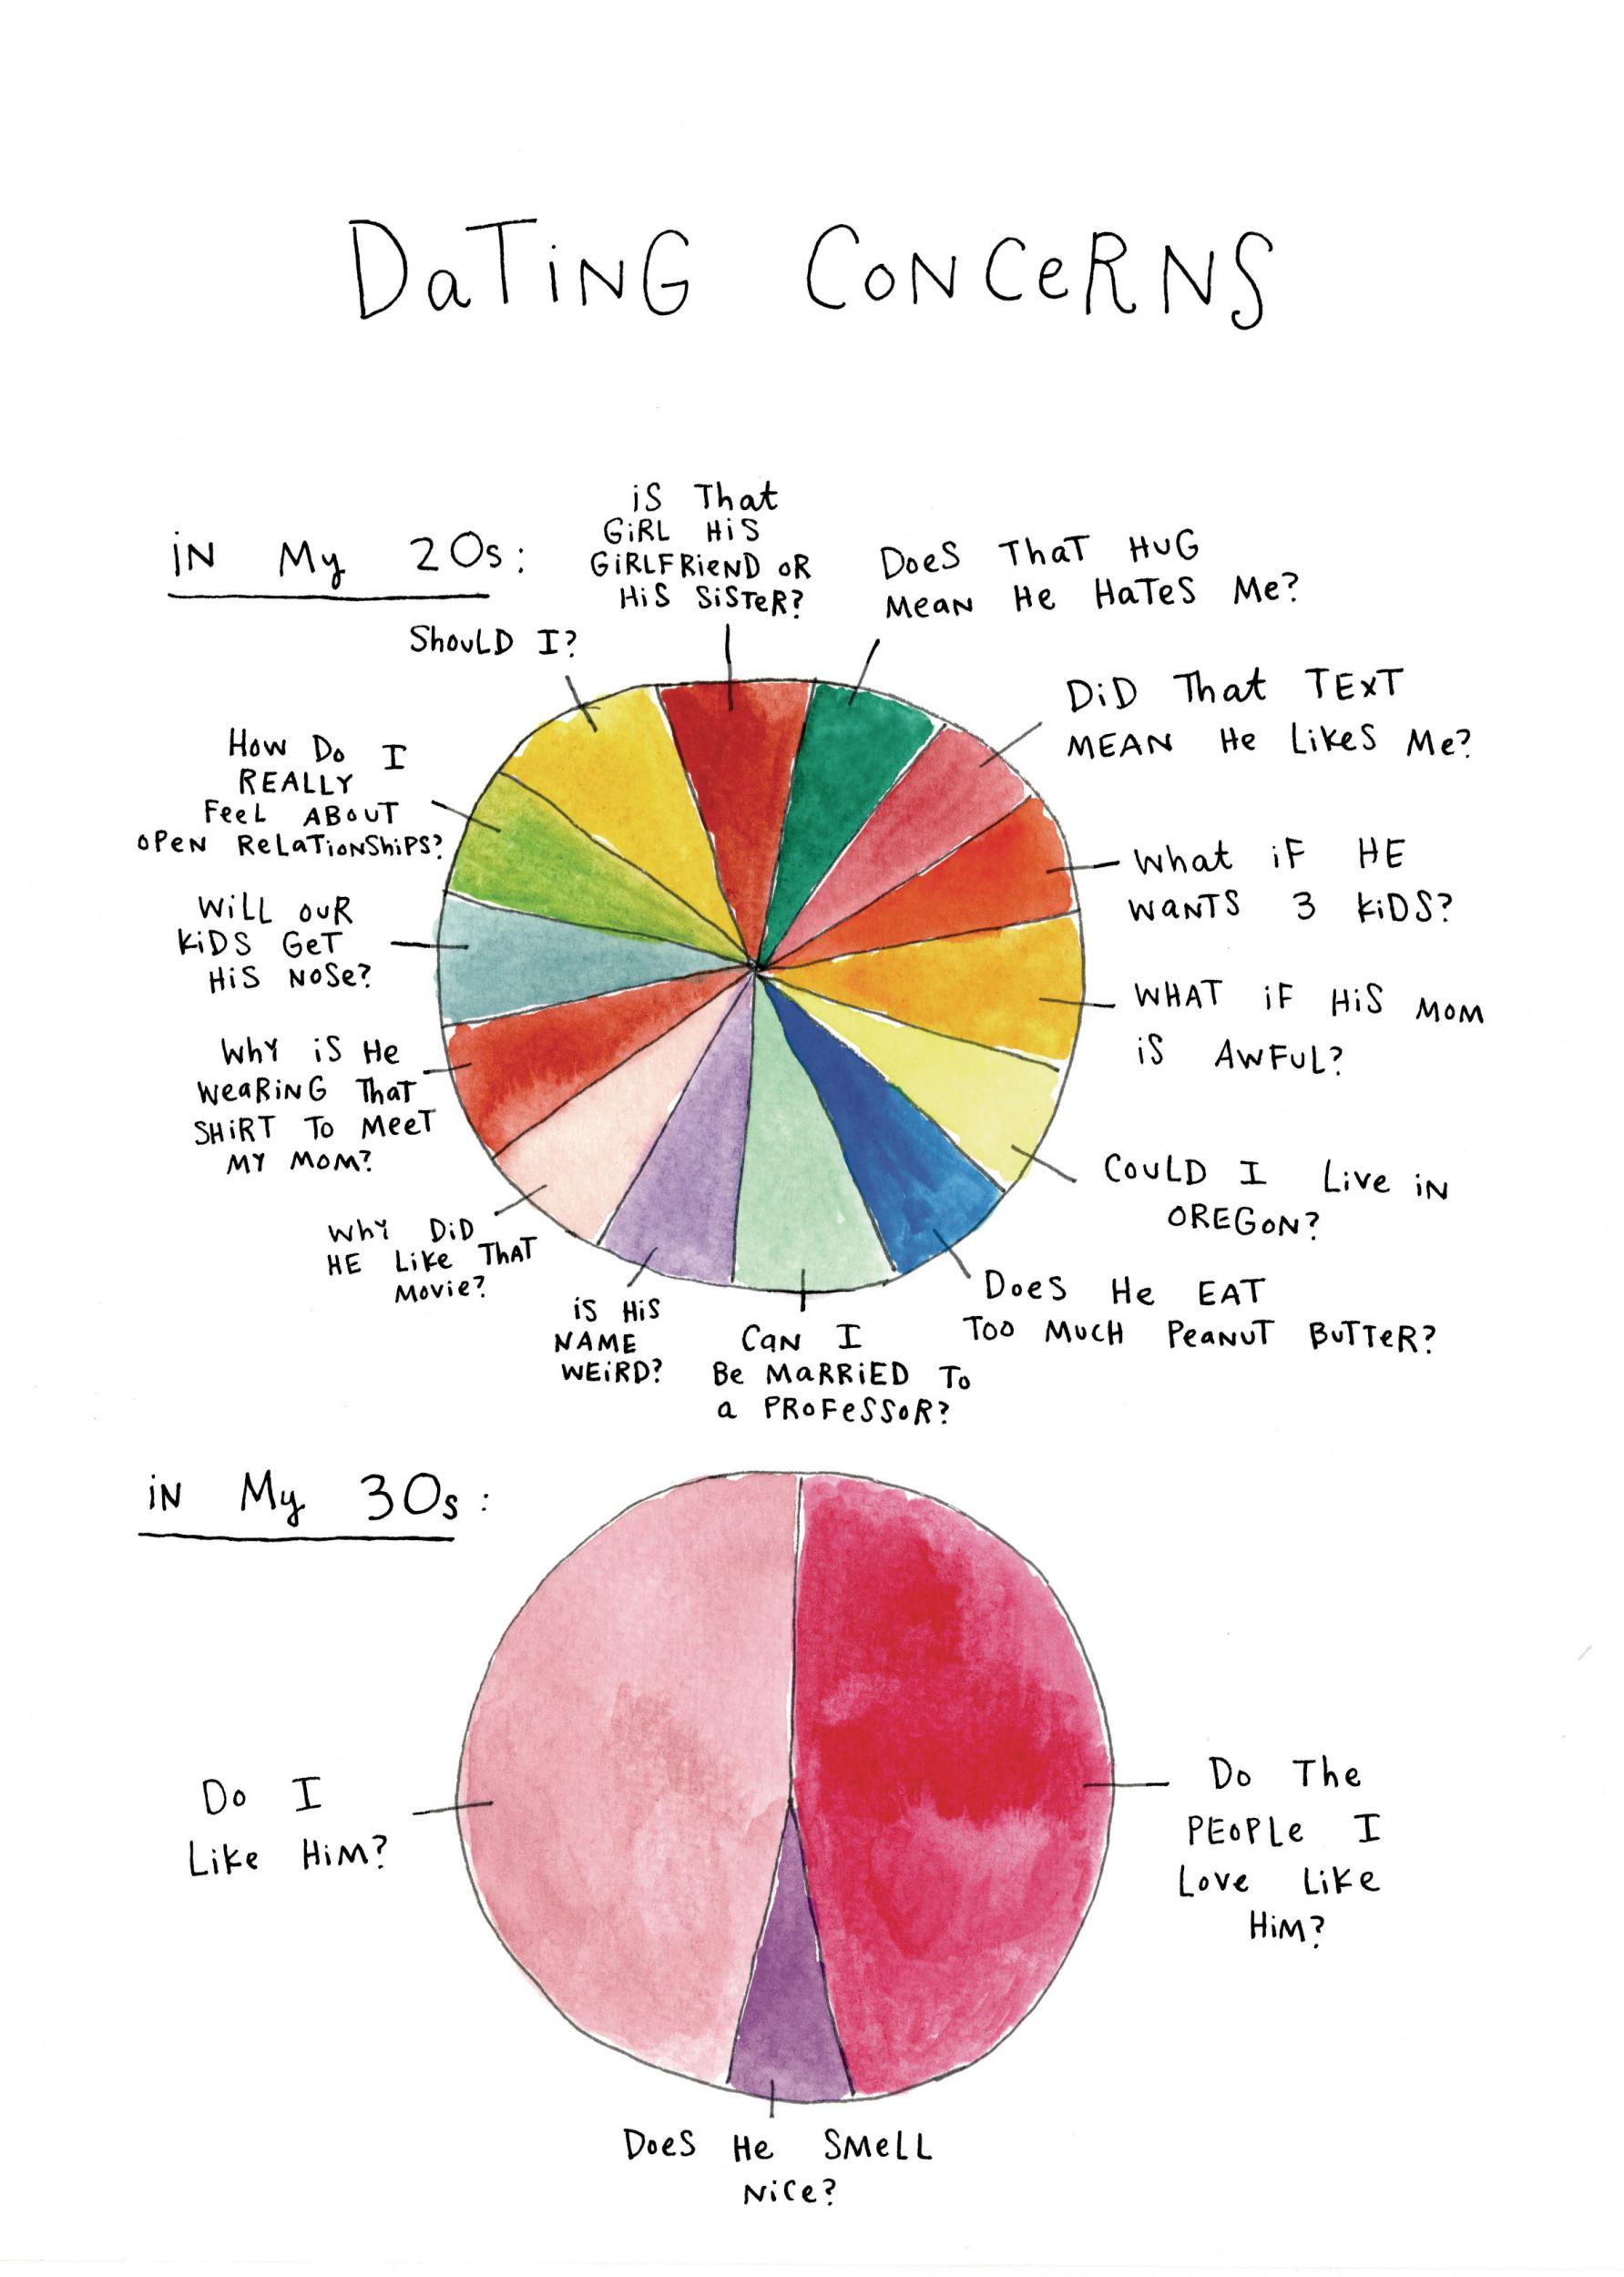 DaTiNG CoNCeRNS
iN My 20s:
iS That
GiRL HiS
GiRLFRieND oR
HiS SiSTeR?
DoeS ThaT HUG
MeaN He HaTeS Me?
DiD That TExT
MEAN He LiKeS Me?
What iF HE
WANTS 3 KiDS?
WHAT iF HiS MoM
iS AWFUL?
CoULD I Live iN
OREGoN?
DoeS He EAT
Too MUCH PeaNUT BUTTeR?
CaN I
Be MaRRiED To
a PRoFeSSoR?
iS HiS
NAME
WEiRD?
WhY DiD
HE LiKe THaT
Movie?
WhY iS He
WeaRiNG ThaT
SHiRT To MeeT
MY MoM?
WiLL oUR
KiDS GeT
HiS NoSe?
How Do I
REALLY
FeeL ABoUT
oPeN ReLaTioNShiPS?
ShoULD I?
iN My 30s:
Do I
Like HiM?
Do The
PEoPLe I
Love LiKe
HiM?
DoeS He SMeLL
NiCe?